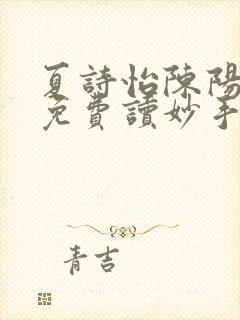 夏詩怡陳陽
免費讀妙手
青吉